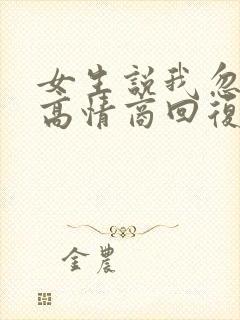 女生説我忽
高情商回復
金農